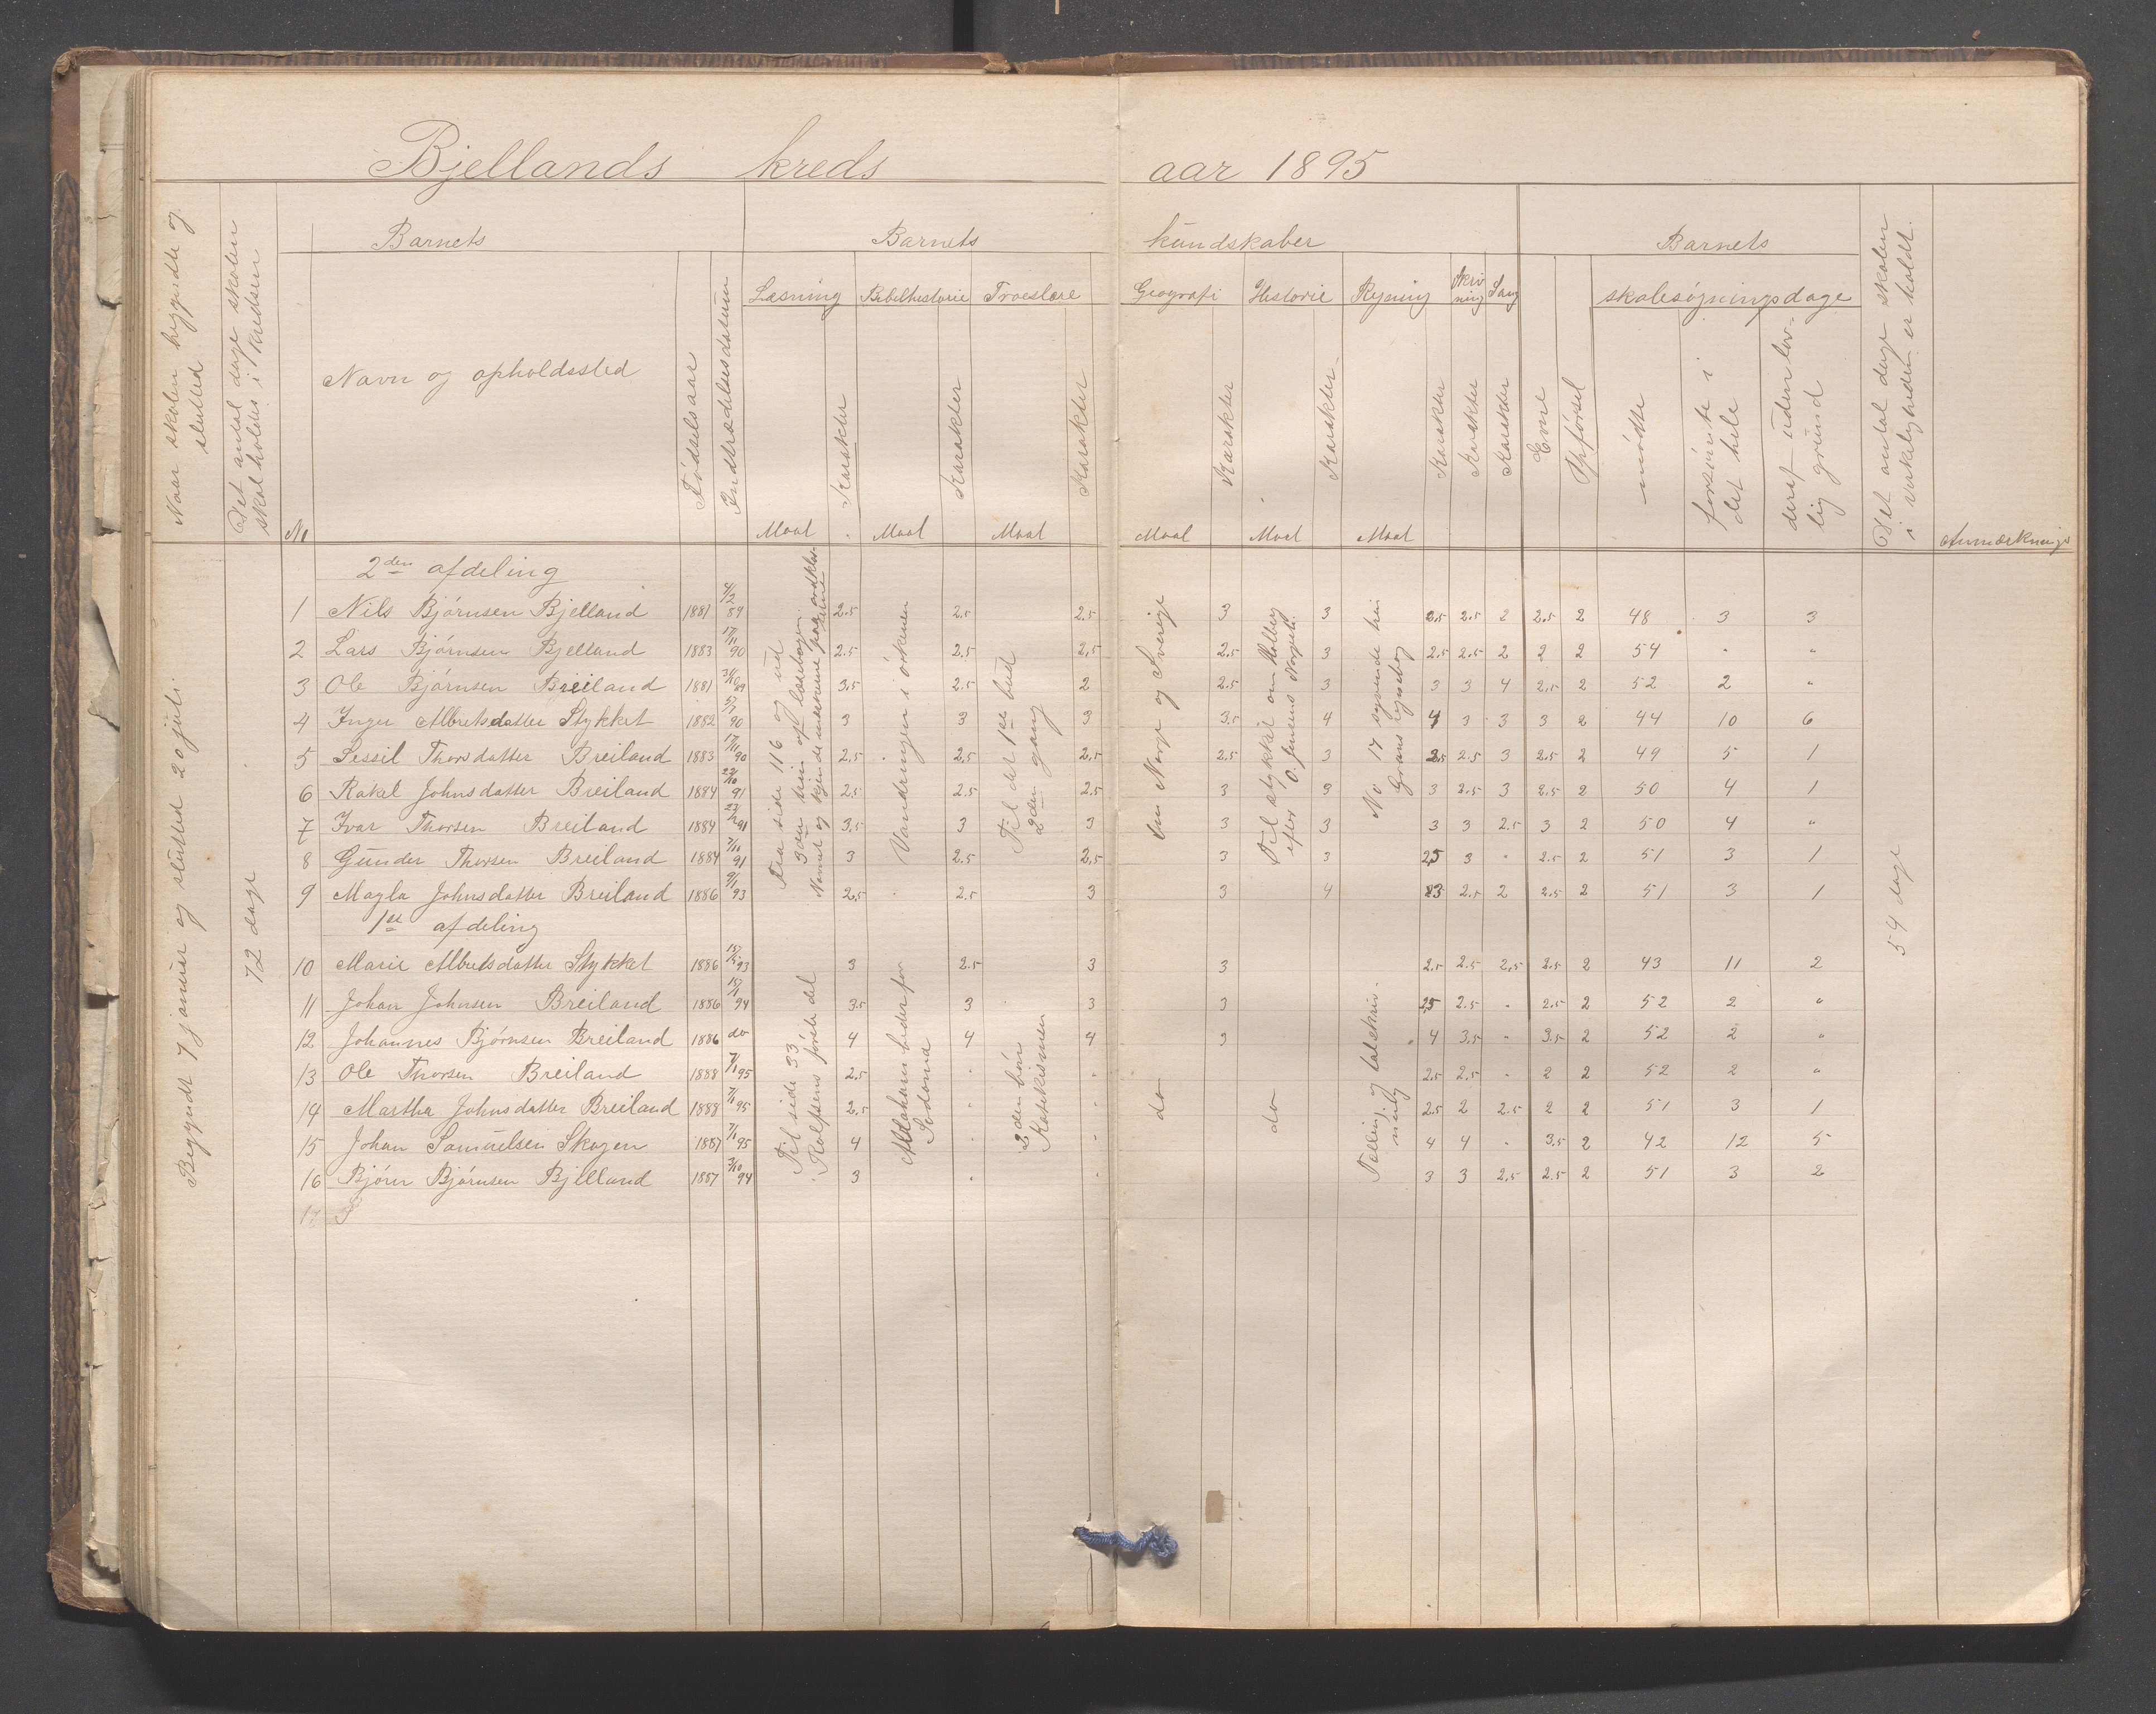 Bjellands kreds aar 1895
Naar skolen begyndte og slutted
Det antal dage skolen skal holdes i kredsen
Barnets
Barnets kundskaber
Barnets
No
Navn og opholdssted
Fødselsaar
Indtrædelsesdatum
Læsning Bibelhistorie Troeslære Geografi Historie Regning Skrivning Sang
Maal Karakter Maal Karakter Maal Karakter Maal Karakter Maal Karakter Maal Karakter Karakter Karakter
Evne
Opførsel
skolesøgningsdage
mødte
forsømte i det hele
deraf uden lovlig grund
Det antal dage skolen i virkeligheden er holdt.
Anmærkninge
Begyndt 7 januar og slutted 20 juli.
72 dage
2den afdeling
1 Nils Bjørnsen Bjelland 1881 84 2.5 2.5 2.5 3 3 2.5 2.5 2 2.5 2 48 3 3
2 Lars Bjørnsen Bjelland 1883 17/11 90 2.5 2.5 2.5 2.5 3 2.5 2.5 2 2 2 54 " "
3 Ole Bjørnsen Breiland 1881 31/10 89 3.5 2.5 2 2.5 3 3 3 4 2.5 2 52 2 "
4 Inger Albretsdatter Stykket 1882 90 3 3 3 3.5 4 4 3 3 3 2 44 10 6
5 Sessil Thorsdatter Breiland 1883 17/11 90 2.5 2.5 2.5 2.5 3 2.5 2.5 3 2.5 2 49 5 1
6 Rakel Johnsdatter Breiland 1884 91 2.5 2.5 2.5 3 3 3 2.5 3 2.5 2 50 4 1
7 Ivar Thorsen Breiland 1884 91 3.5 3 3 3 3 3 3 2.5 3 2 50 4 "
8 Gunder Thorsen Breiland 1884 91 3 2.5 2.5 3 3 2.5 3 " 2.5 2 51 3 1
9 Magla Johnsdatter Breiland 1886 93 2.5 2.5 3 3 4 3 2.5 2 2.5 2 51 3 1
Fra side 116 og ud 3die trin af læsebogen
Vandringen i ørkenen
Til det 1ste bud 2den gang
Om Norge og Sverige
Til stykket om Holberg efter O. Jensens Norgeh.
No 17 syvende trin Grans regnebog
1ste afdeling
10 Marie Albretsdatter Stykket 1886 93 3 2.5 3 3 2.5 2.5 2.5 2.5 2 43 11 2
11 Johan Johnsen Breiland 1886 94 3.5 3 3 3 2.5 2.5 " 2.5 2 52 2 "
12 Johannes Bjørnsen Breiland 1886 do 4 4 4 3 4 3.5 " 3.5 2 52 2 "
13 Ole Thorsen Breiland 1888 7/1 95 2.5 " " 2.5 2.5 " 2 2 52 2 "
14 Martha Johnsdatter Breiland 1888 7/1 95 2.5 " " 2.5 2 2.5 2 2 51 3 1
15 Johan Samuelsen Skogen 1887 7/1 95 4 " " 4 4 " 3.5 2 42 12 5
16 Bjørn Bjørnsen Bjelland 1887 94 3 " " 3 3 2.5 2.5 2 51 3 2
17
Til side 33 Rolfsens første del
Abraham beder for Sodoma
2den bøn Katekismen
do
do
Tælling og talskrivning
54 dage